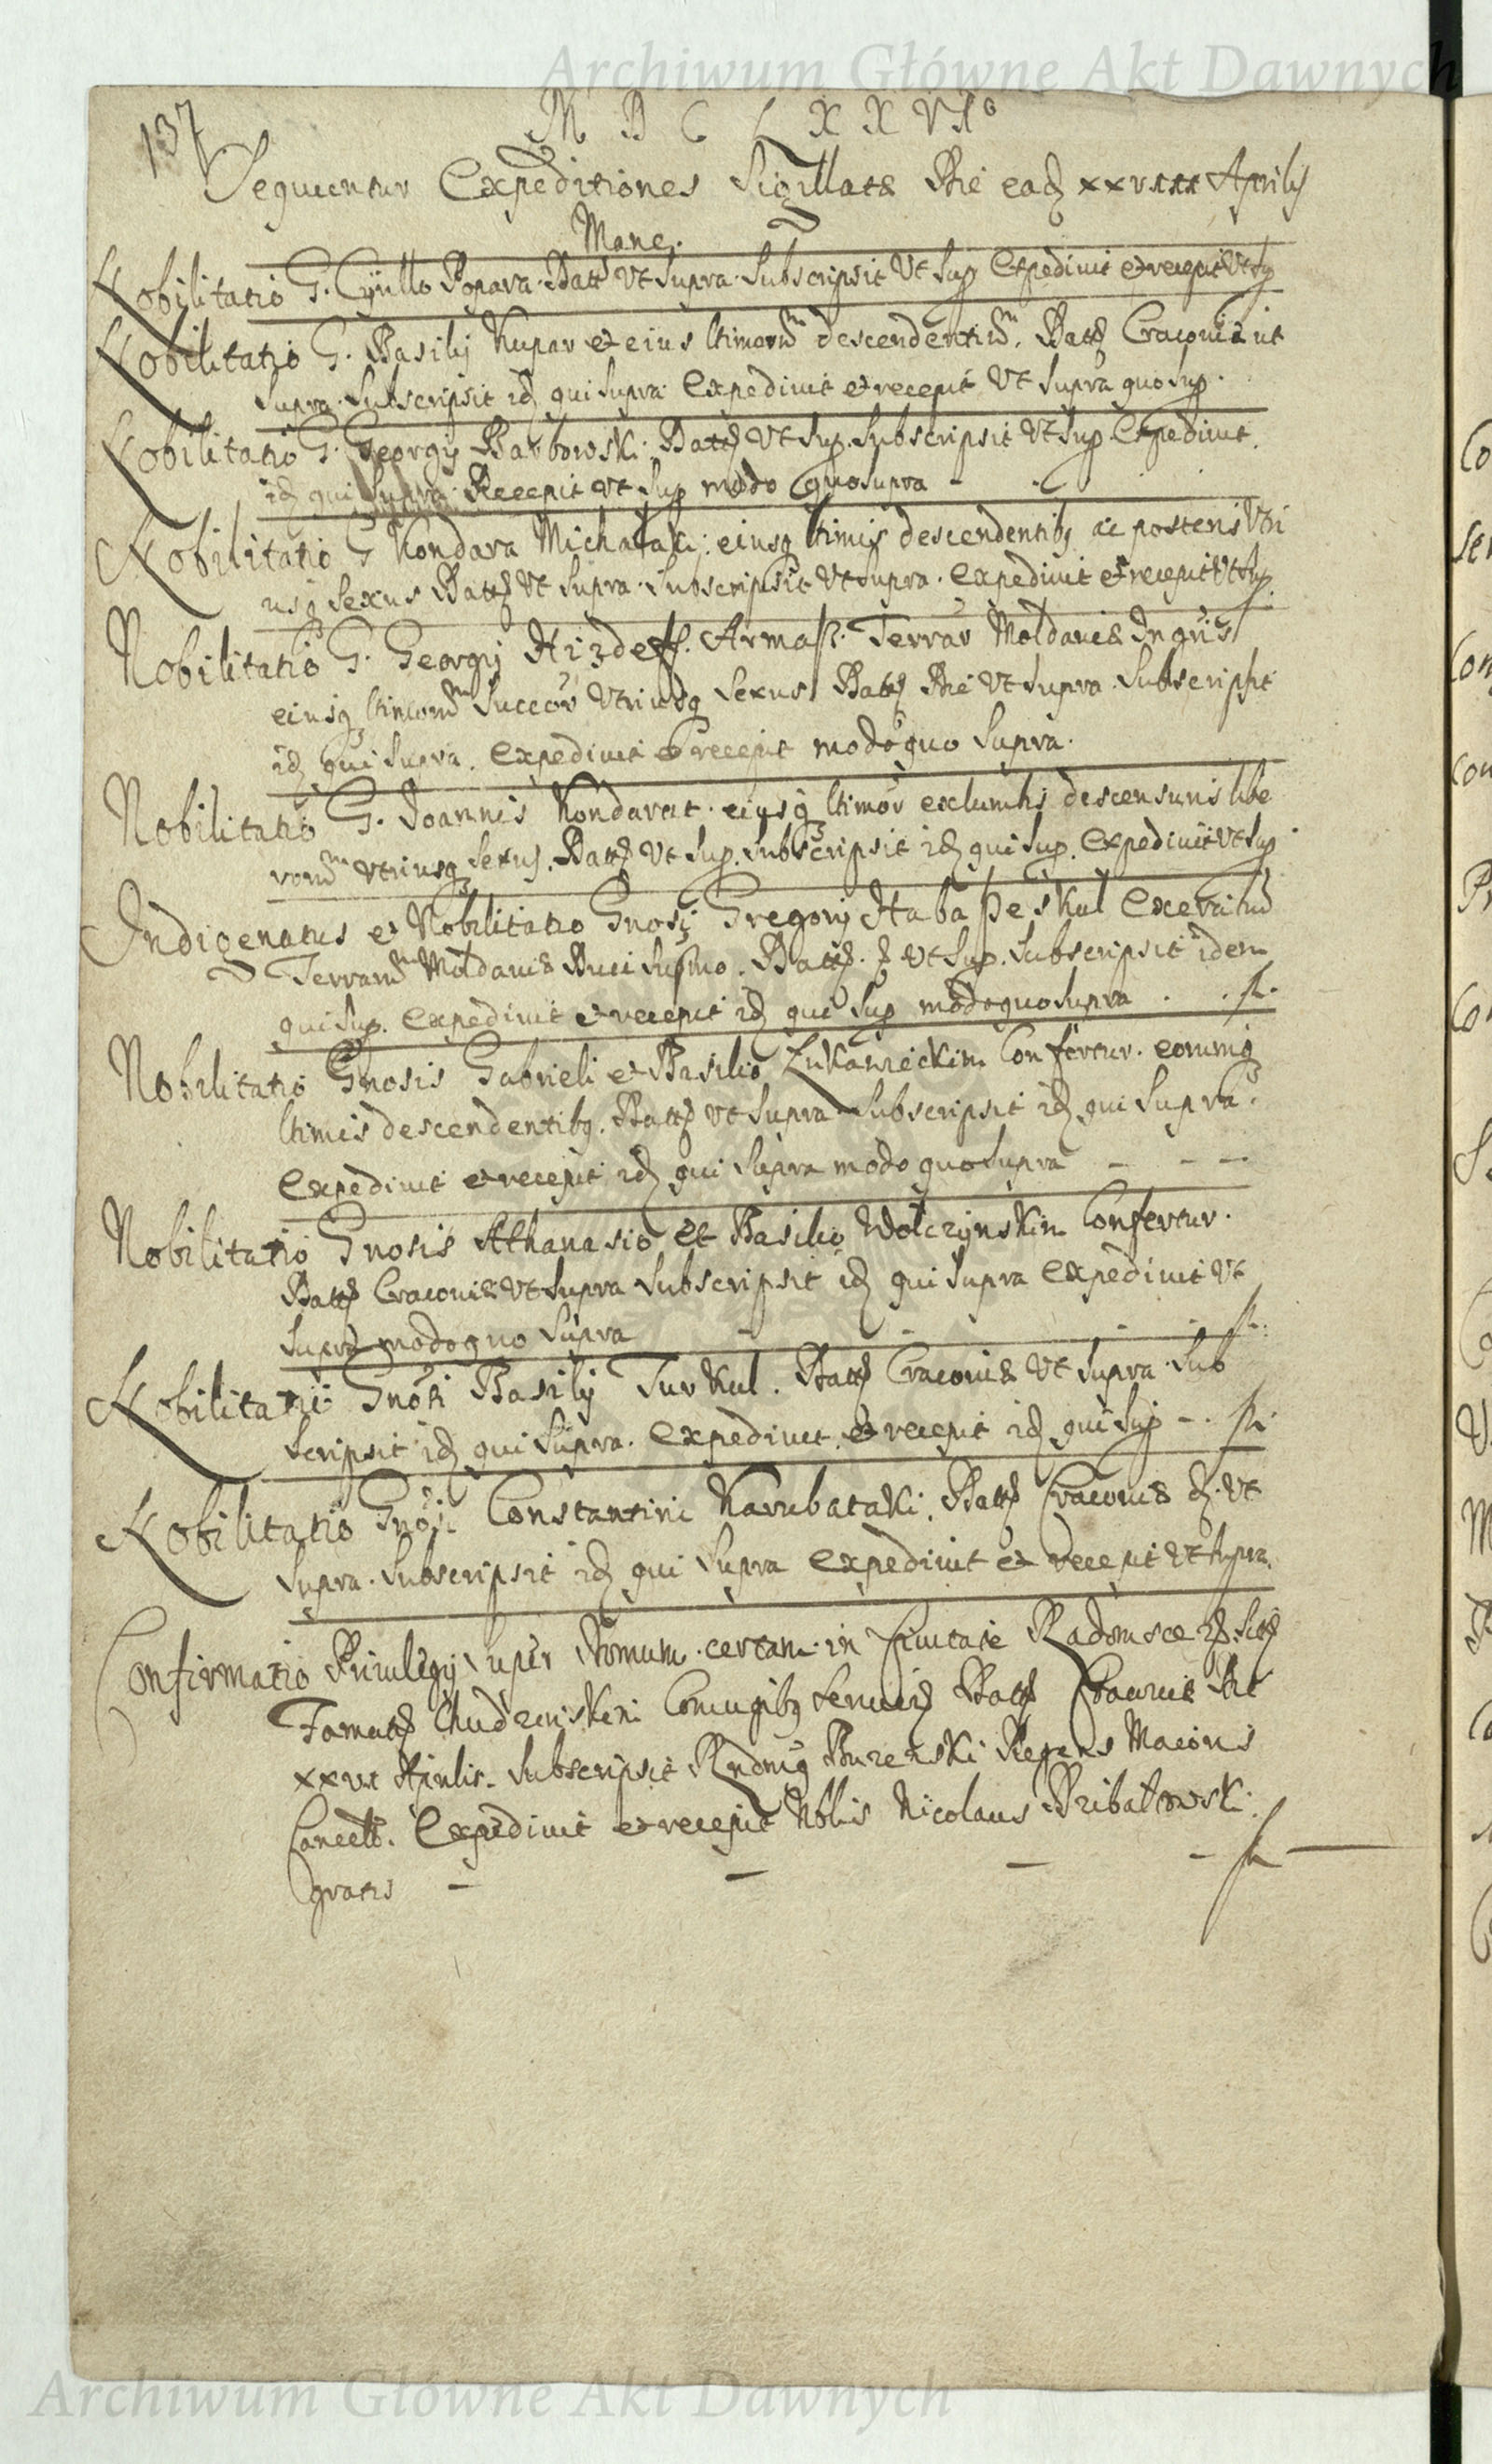 Archiwum Główne Akt Dawnych
137
M D C L X X VI°
Sequuntur Expeditiones Sigillatæ Die eadẽ xxviii Aprilis
Mane.
Nobilitatio G. Cyrillo Popara. Datt ut supra. Subscripsit ut sup Expedivit et recepit ut sup
Nobilitatio G. Basilij Kupar et eius ltimorũ descendentiũ. Datt Cracoviæ ut
supra. Subscripsit id qui supra. Expedivit et recepit ut supra quo sup.
Nobilitatio G. Georgij Barbowski. Datt ut sup. Subscripsit ut sup. Expedivit
id qui supra. Recepit ut sup modo quo supra -
Nobilitatio G Kondara Michalaki: eiusq ltimis descendentibq ac posteris utri
usq sexus Datt ut supra. Subscripsit ut supra. Expedivit et recepit ut sup.
Nobilitatio G. Georgij Hizdeff. Armaß. Terrar Moldaviæ
eiusq ltimorũ Succor utriusq sexus Datt Die ut supra. Subscripsit
id qui supra. Expedivit et recepit modo quo supra.
Nobilitatio G. Joannis Kondarat. eiusq ltimor exlumbis descensuris libe
rorũ utriusq sexus. Datt ut sup. Subscripsit id qui sup. Expedivit ut sup
Indigenatus et Nobilitatio Gnosi Gregorij Habaßeskul Exercituũ
Terrarũ Moldaviæ Duci Supmo. Datt. ut sup. Subscripsit idem
qui sup. Expedivit et recepit id qui sup modo quo supra.
Nobilitatio Gnosis Gabrieli et Basilio Zukawieckim Confertur. eorumq
ltimis descendentibq. Datt ut supra Subscripsit id qui supra.
Expedivit et recepit id qui supra modo quo supra - - -
Nobilitatio Gnosis Athanasio et Basilio Wolczynskim Confertur.
Datt Cracoviæ ut supra Subscripsit id qui supra Expedivit ut
supra modo quo supra - - - -
Nobilitatii Gnosi Basilij Turkul. Datt Cracoviæ ut supra. Sub
scripsit id qui supra. Expedivit et recepit id qui sup -.
Nobilitatio Gnosi Constantini Karubataki. Datt Cracoviæ ut
supra. Subscripsit id qui supra Expedivit et recepit ut supra.
Confirmatio Privilegij super Domum certam in Civitate Radomsce
Famatt Chudzinskim Coniugibq serviẽ Datt Cracoviæ Die
xxvi Aprilis. Subscripsit Rndmq Burzenski Regens Maioris
Cancell. Expedivit et recepit Nblis Nicolaus Pribalowski.
gratis - - - -
Archiwum Główne Akt Dawnych